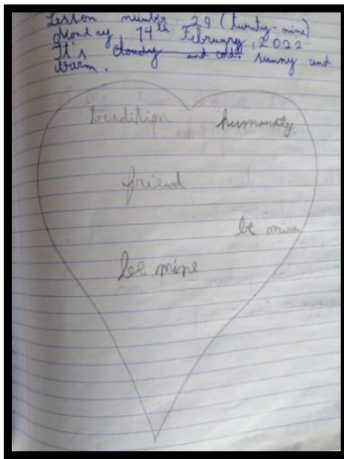 Lesson number 29 (twenty-nine)
Monday, 14th February, 2022
It's cloudy and cold sunny and
warm.
tradition humanaty
friend
be mine
be mine